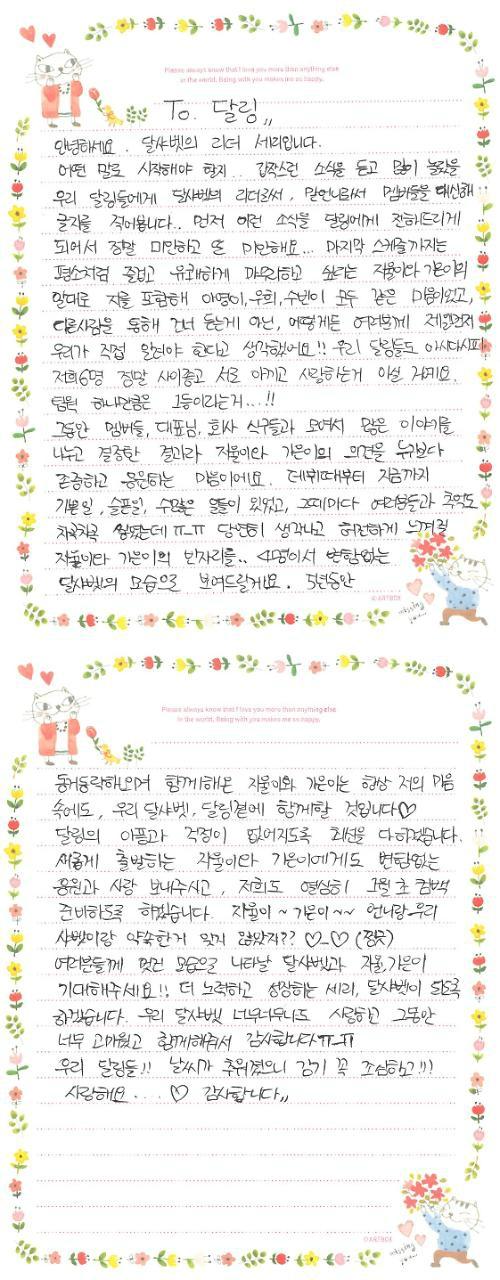 Please always know that I love you more than anything else
in the world. Being with you makes me so happy.
To. 달링,,
안녕하세요. 달샤벳의 리더 세리입니다.
어떤 말로 시작해야 할지.. 갑작스런 소식을 듣고 많이 놀랐을
우리 달링들에게 달샤벳의 리더로서, 맏언니로서 멤버들을 대신해
글자를 적어봅니다.. 먼저 이런 소식을 달링에게 전해드리게
되어서 정말 미안하고 또 미안해요... 마지막 스케줄까지는
평소처럼 즐겁고 유쾌하게 마무리하고 싶다는 지율이와 가은이의
말대로 저를 포함해 아영이, 우희, 수빈이 모두 같은 마음이었고,
다른사람을 통해 건너 듣는게 아닌, 어떻게든 여러분께 제일먼저
우리가 직접 알려야 한다고 생각했어요!! 우리 달링들도 아시다시피
저희6명 정말 사이좋고 서로 아끼고 사랑하는거 아실 거에요.
팀웍 하나만큼은 1등이라는거...!!
그동안 멤버들, 대표님, 회사 식구들과 모여서 많은 이야기를
나누고 결정한 결과라 지율이와 가은이의 의견을 누구보다
존중하고 응원하는 마음이에요. 데뷔때부터 지금까지
기쁜일, 슬픈일, 수많은 일들이 있었고, 그때마다 여러분들과 추억도
차곡차곡 쌓였는데 ㅠ_ㅠ 당연히 생각나고 허전하게 느껴질
지율이와 가은이의 빈자리를.. 4명이서 변함없는
달샤벳의 모습으로 보여드릴게요. 5년동안
© ARTBOX
missing you...
Please always know that I love you more than anything else
in the world. Being with you makes me so happy.
동거동락하며 함께해온 지율이와 가은이는 항상 저의 마음
속에도, 우리 달샤벳, 달링곁에 함께할 것입니다♡
달링의 아픔과 걱정이 없어지도록 최선을 다하겠습니다.
새롭게 출발하는 지율이와 가은이에게도 변함없는
응원과 사랑 보내주시고, 저희도 열심히 그릴 초 컴백
준비하도록 하겠습니다. 지율이~ 가은이~~ 언니랑 우리
샤벳이랑 약속한거 잊지 않았지?? ♡_♡ (찡긋)
여러분들께 멋진 모습으로 나타날 달샤벳과 지율,가은이
기대해주세요!! 더 노력하고 성장하는 세리, 달샤벳이 되도록
하겠습니다. 우리 달샤벳 너무너무나도 사랑하고 그동안
너무 고마웠고 함께해줘서 감사합니다ㅠ_ㅠ
우리 달링들!! 날씨가 추워졌으니 감기 꼭 조심하고!!!
사랑해요.... ♡ 감사합니다,,
© ARTBOX
missing you...